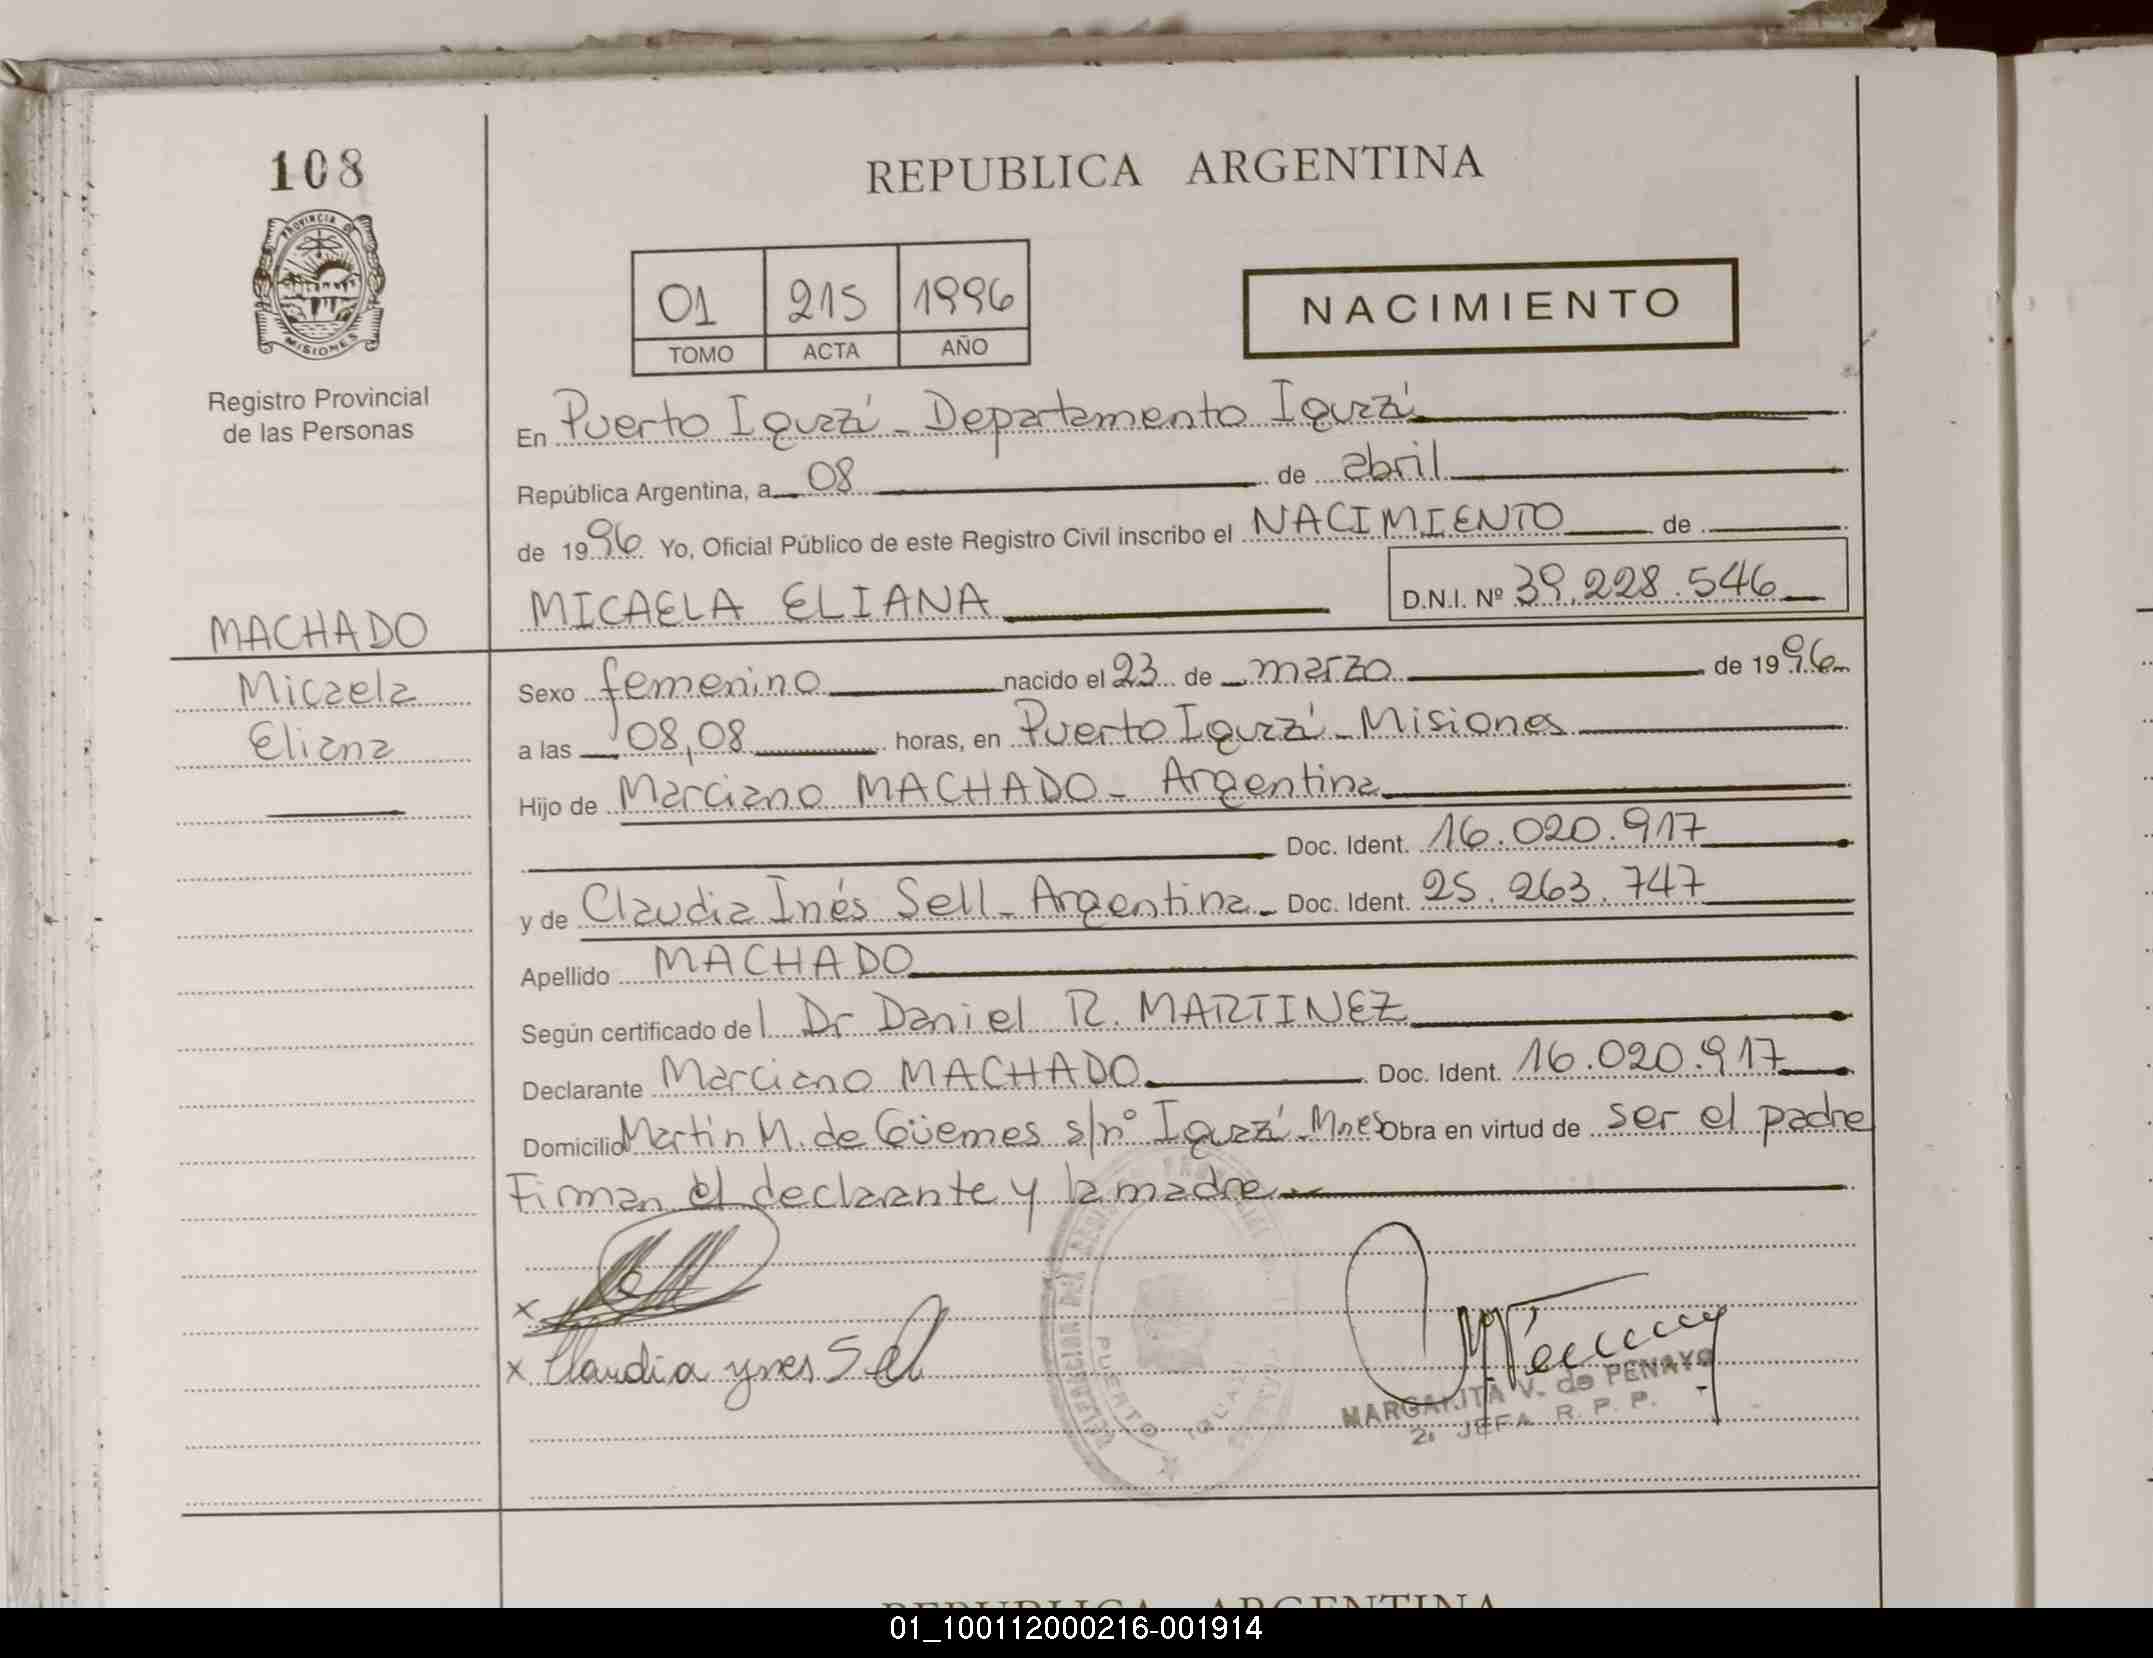 108
PROVINCIA DE
MISIONES
Registro Provincial
de las Personas
REPUBLICA ARGENTINA
01 215 1996
TOMO ACTA AÑO
NACIMIENTO
En Puerto Iguazú - Departamento Iguazú
República Argentina, a 08 de abril
de 1996 Yo, Oficial Público de este Registro Civil inscribo el NACIMIENTO de
MICAELA ELIANA D.N.I. Nº 39.228.546
MACHADO
Micaela
Eliana
Sexo femenino nacido el 23 de marzo de 1996
a las 08,08 horas, en Puerto Iguazú - Misiones
Hijo de Marciano MACHADO - Argentina
Doc. Ident. 16.020.917
y de Claudia Inés Sell - Argentina - Doc. Ident. 25.263.747
Apellido MACHADO
Según certificado del Dr Daniel R. MARTINEZ
Declarante Marciano MACHADO Doc. Ident. 16.020.917
Domicilio Martín M. de Güemes s/nº Iguazú - Mnes Obra en virtud de ser el padre
Firman el declarante y la madre
x
x Claudia ynes Sel
PUERTO IGUAZU
MARGARITA V. de PENAYO
2a JEFA R. P. P.
REPUBLICA ARGENTINA
01_100112000216-001914